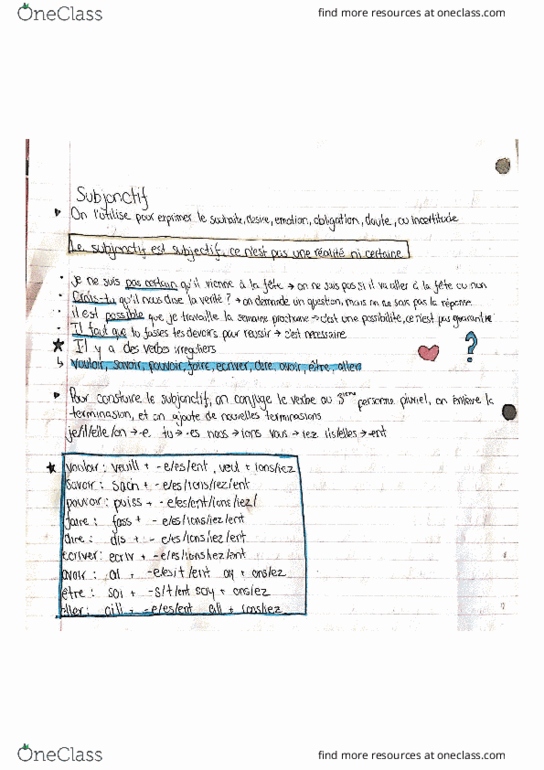 OneClass
find more resources at oneclass.com
Subjonctif
On l'utilise pour exprimer le souhaite, desire, emotion, obligation, doute, ou incertitude
Le subjonctif est subjectif, ce n'est pas une réalité ni certaine.
Je ne suis pas certain qu'il vienne à la fête → on ne sais pas si il va aller à la fête ou non
Crois-tu qu'il nous dise la verité? → on demande un question, mais on ne sais pas la réponse.
il est possible que je travaille la semaine prochaine → c'est une possibilité, ce n'est pas guarantie
Il faut que tu fasses tes devoirs pour reussir → c'est necessaire
Il y a des verbes irreguliers
↳ vouloir, savoir, pouvoir, faire, ecriver, dire, avoir, être, aller
Pour constuire le subjonctif, on conjugue le verbe au 3ieme personne pluriel, on enlève la
terminasion, et on ajoute de nouvelles terminasions
je/il/elle/on → -e tu → -es nous → ions vous → iez ils/elles → -ent
vouloir: veuill + -e/es/ent, voul + ions/iez
savoir: sach + -e/es/ions/iez/ent
pouvoir: puiss + -e/es/ent/ions/iez/
faire: fass + -e/es/ions/iez/ent
dire: dis + -e/es/ions/iez/ent
ecriver: ecriv + -e/es/ions/iez/ent
avoir: ai + -e/es/t/ent ay + ons/ez
être: soi + -s/t/ent soy + ons/ez
aller: aill + -e/es/ent all + ions/iez
?
OneClass
find more resources at oneclass.com